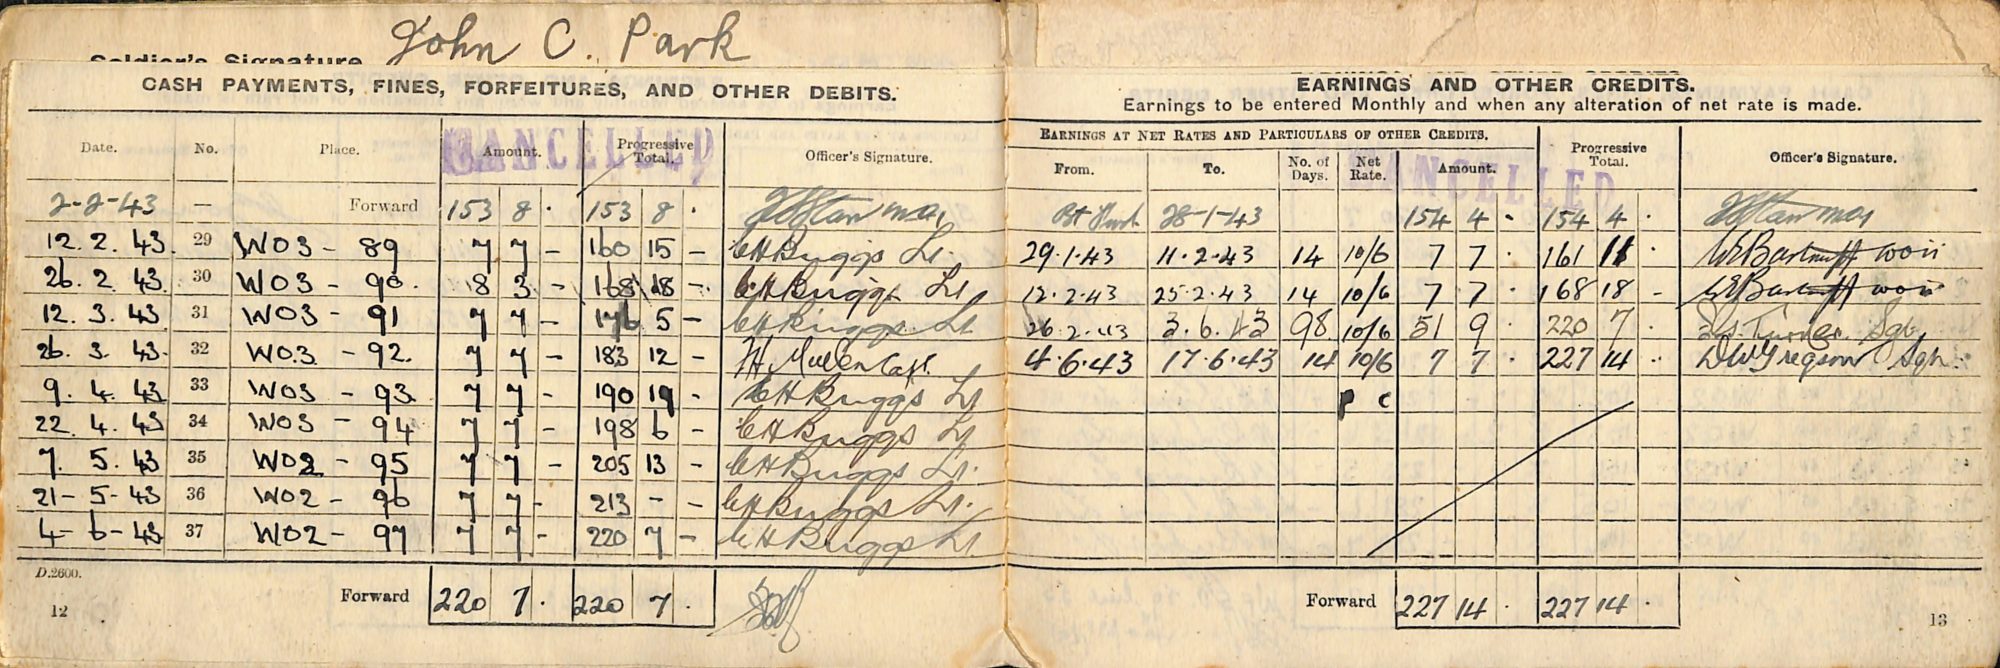 Soldier's Signature John C. Park
CASH PAYMENTS, FINES, FORFEITURES, AND OTHER DEBITS.
CANCELLED
Date. No. Place. Amount. Progressive Total. Officer's Signature.
2-2-43 — Forward 153 8 · 153 8 ·
12. 2. 43. 29 WO3 - 89 7 7 - 160 15 - CH Briggs Lt.
26. 2. 43. 30 WO3 - 90. 8 3 - 168 18 - CH Briggs Lt
12. 3. 43. 31 WO3 - 91 7 7 - 176 5 - CH Briggs Lt.
26. 3. 43. 32 WO3 - 92. 7 7 - 183 12 - Capt.
9. 4. 43 33 WO3 - 93. 7 7 - 190 19 - CH Briggs Lt
22. 4. 43 34 WO3 - 94 7 7 - 198 6 - CH Briggs Lt
7. 5. 43 35 WO2 - 95 7 7 - 205 13 - CH Briggs Lt.
21-5-43 36 WO2 - 96 7 7 - 213 - - CH Briggs Lt.
4-6-43 37 WO2 - 97 7 7 - 220 7 - CH Briggs Lt
D.2600.
Forward 220 7 · 220 7 ·
12
EARNINGS AND OTHER CREDITS.
Earnings to be entered Monthly and when any alteration of net rate is made.
CANCELLED
EARNINGS AT NET RATES AND PARTICULARS OF OTHER CREDITS.
From. To. No. of Days. Net Rate. Amount. Progressive Total. Officer's Signature.
28-1-43 154 4 · 154 4 ·
29.1.43 11.2.43 14 10/6 7 7 · 161 11 ·
12.2.43 25.2.43 14 10/6 7 7 · 168 18 -
26.2.43 3.6.43 98 10/6 51 9 · 220 7 · Turner Sgt
4.6.43 17.6.43 14 10/6 7 7 · 227 14 · DW Gregson Sgt.
Forward 227 14 · 227 14 ·
13